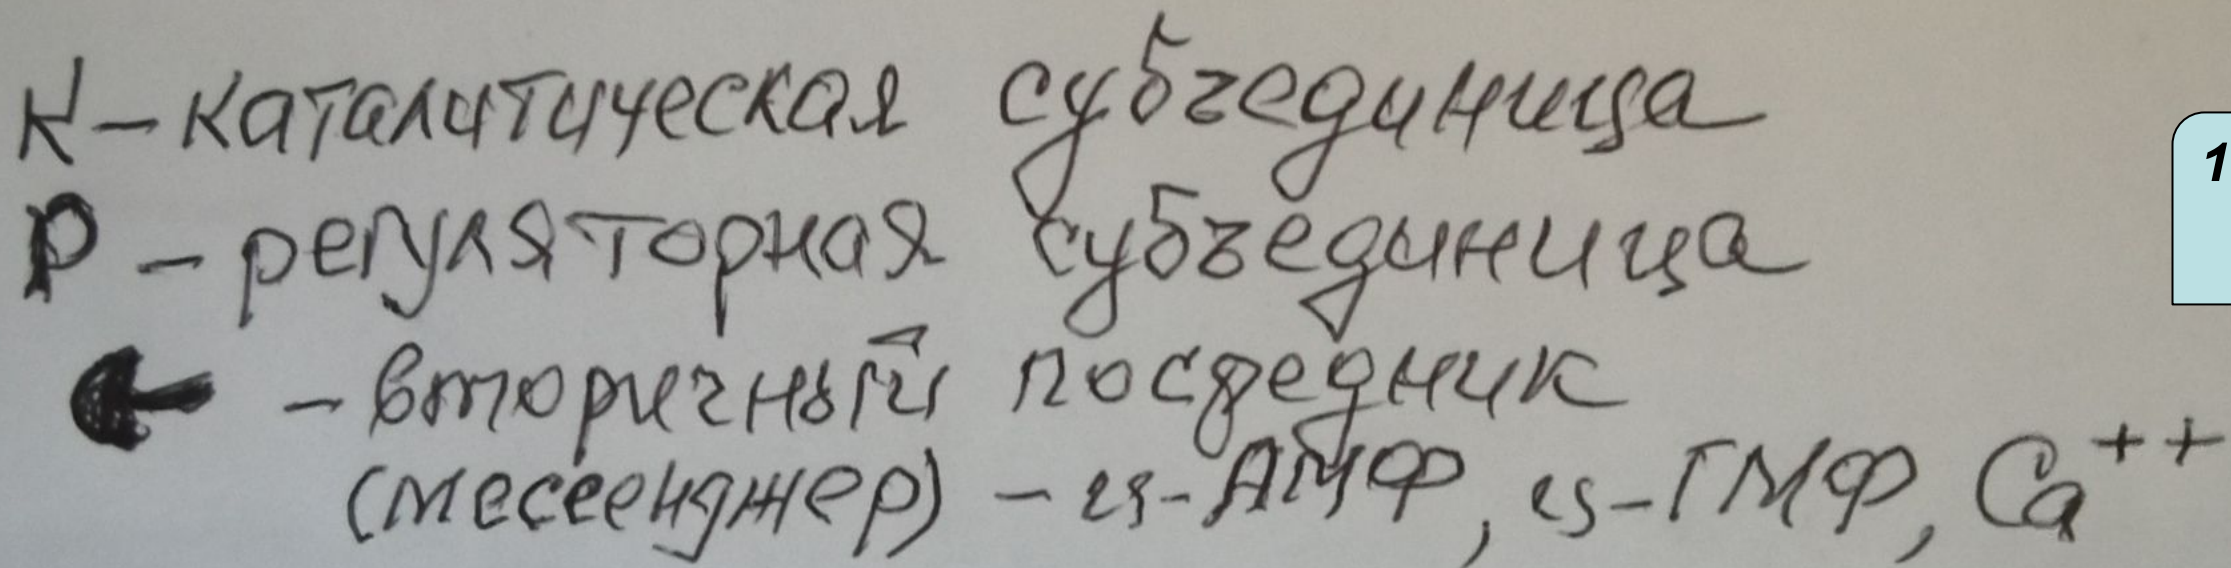 К – каталитическая субъединица
1
Р – регуляторная субъединица
– вторичный посредник
(мессенджер) – ц-АМФ, ц-ГМФ, Ca++